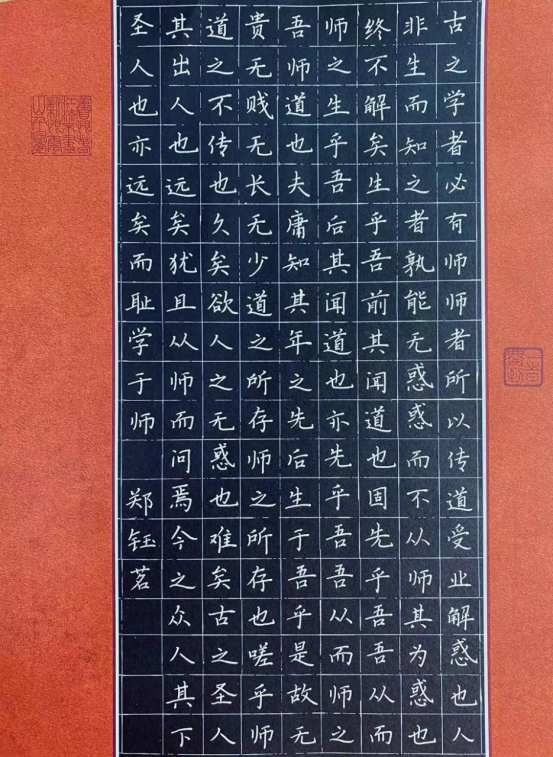 古之学者必有师师者所以传道受业解惑也人
非生而知之者孰能无惑惑而不从师其为惑也
终不解矣生乎吾前其闻道也固先乎吾吾从而
师之生乎吾后其闻道也亦先乎吾吾从而师之
吾师道也夫庸知其年之先后生于吾乎是故无
贵无贱无长无少道之所存师之所存也嗟乎师
道之不传也久矣欲人之无惑也难矣古之圣人
其出人也远矣犹且从师而问焉今之众人其下
圣人也亦远矣而耻学于师 郑钰茗